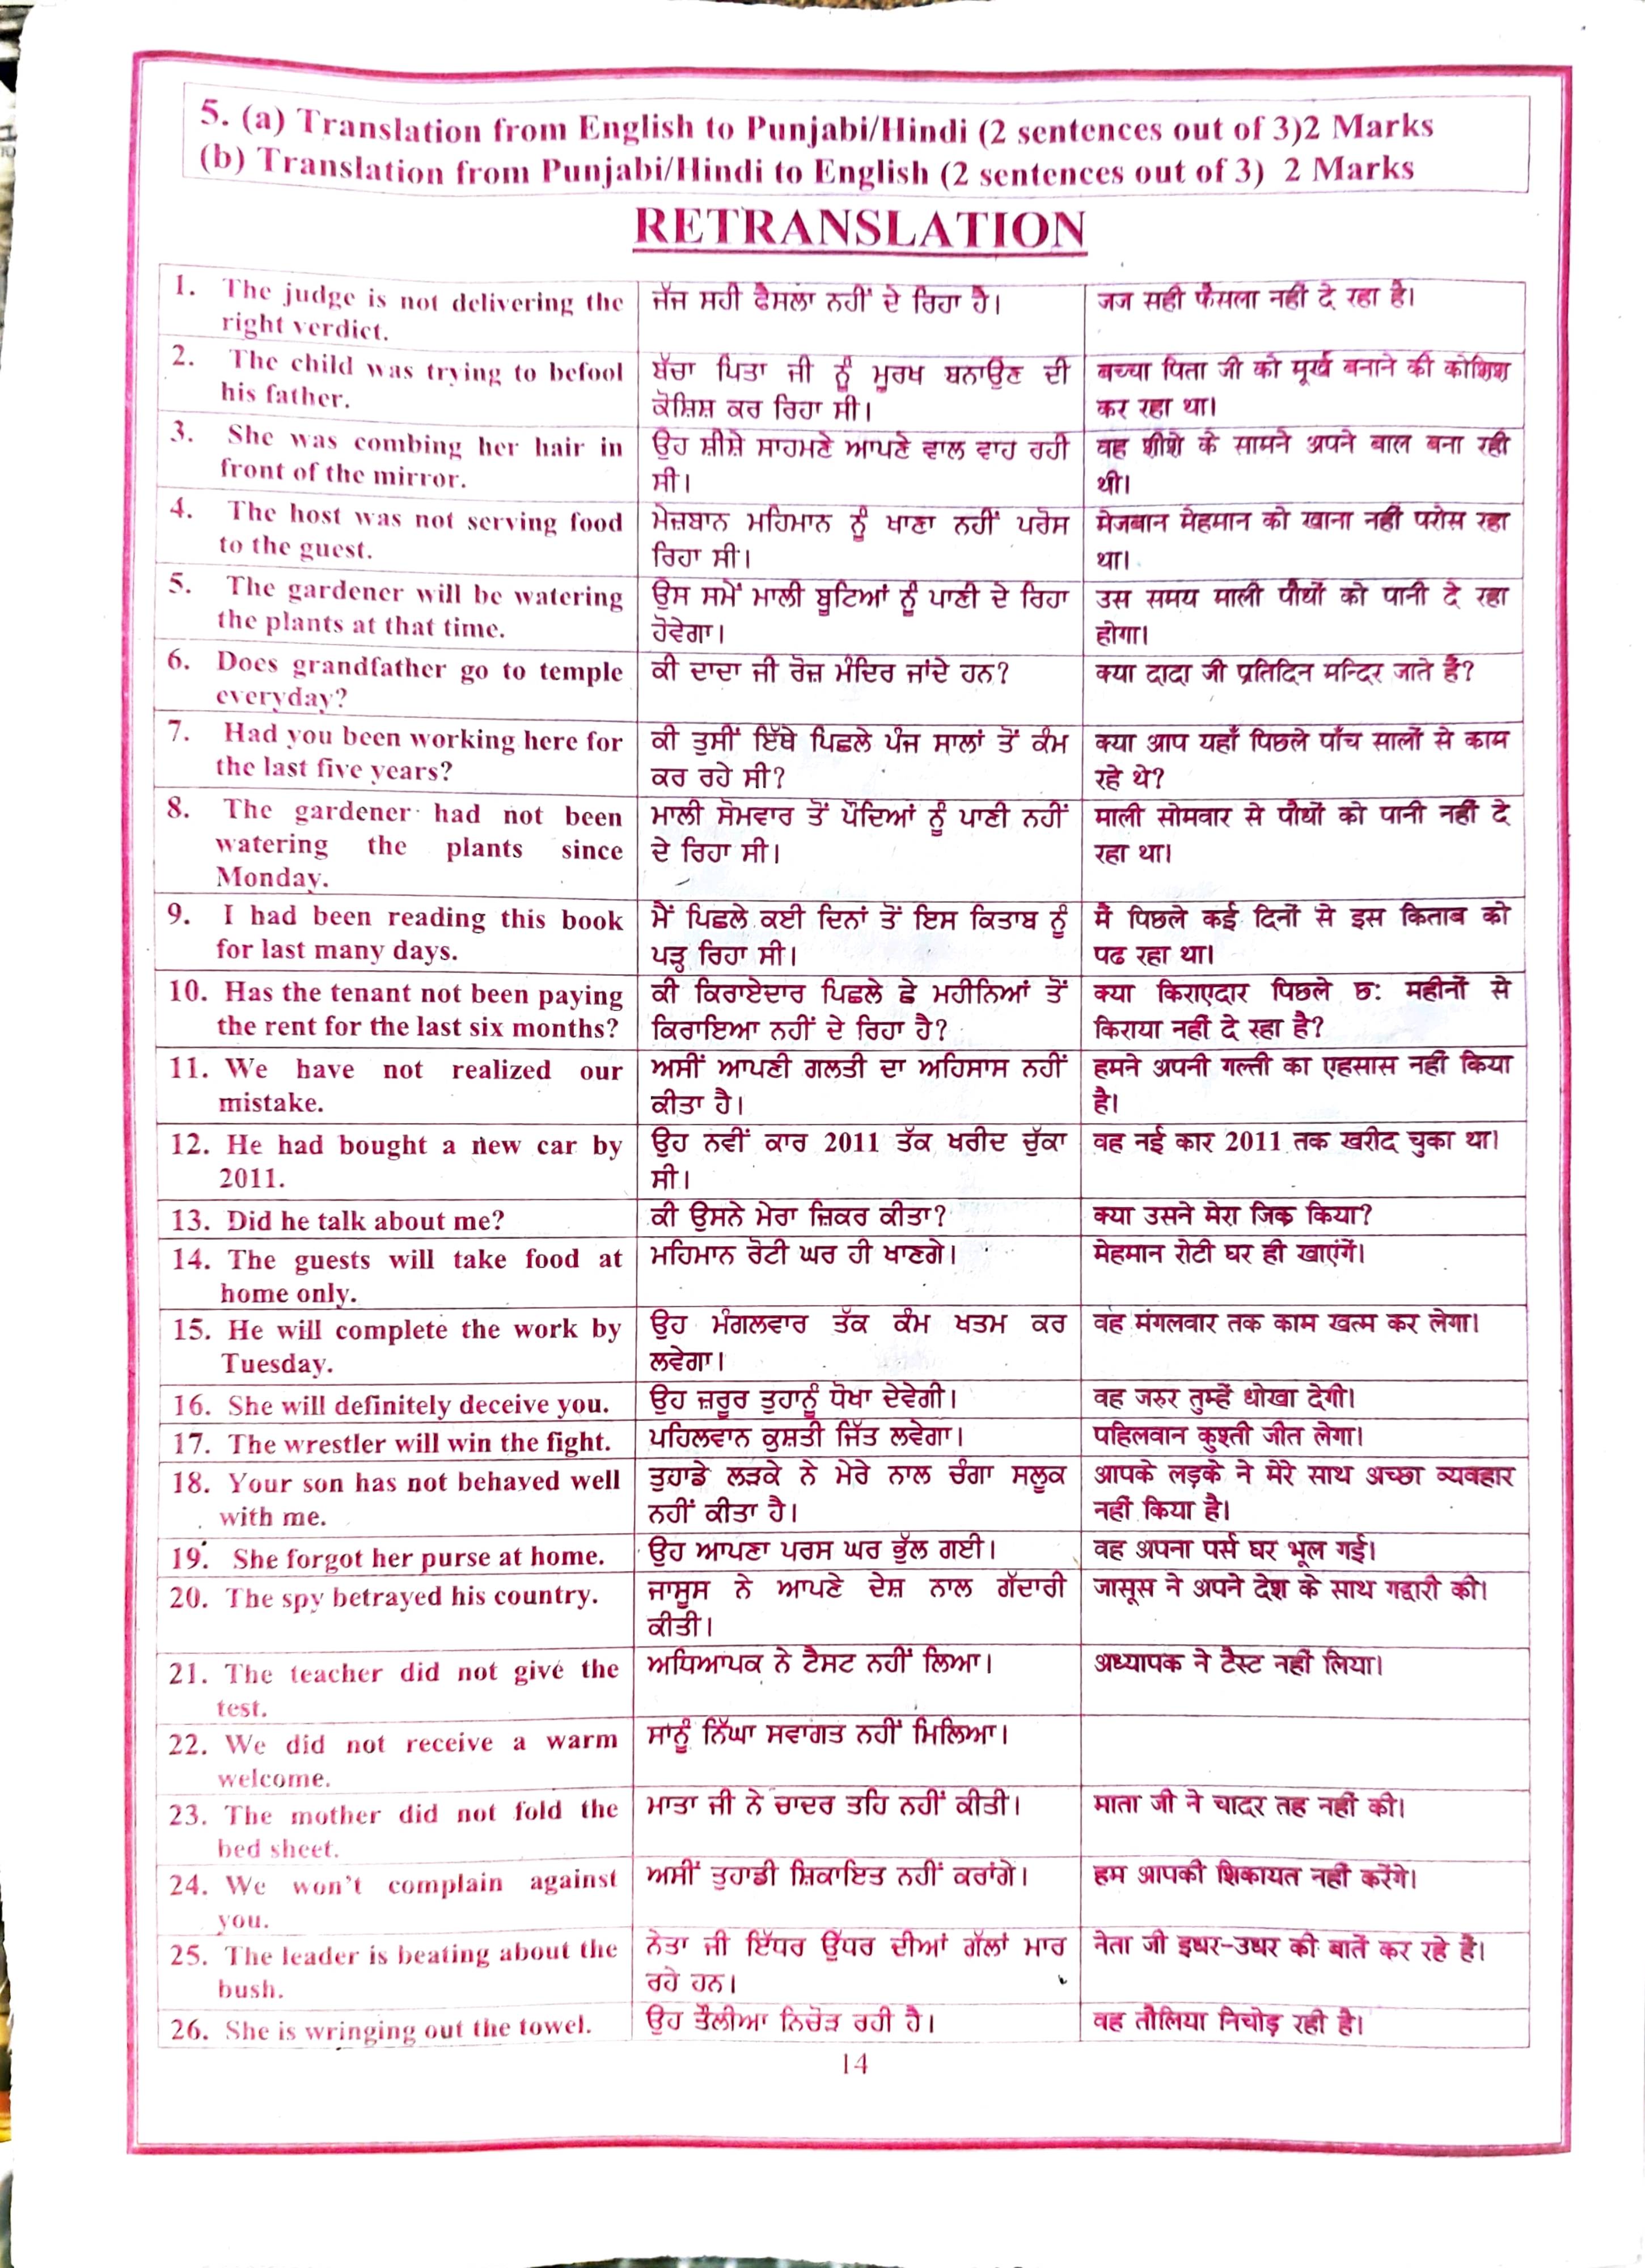 5. (a) Translation from English to Punjabi/Hindi (2 sentences out of 3)2 Marks
(b) Translation from Punjabi/Hindi to English (2 sentences out of 3) 2 Marks
RETRANSLATION
1. The judge is not delivering the
right verdict.
ਜੱਜ ਸਹੀ ਫੈਸਲਾ ਨਹੀਂ ਦੇ ਰਿਹਾ ਹੈ।
जज सही फैसला नहीं दे रहा है।
2. The child was trying to befool
his father.
ਬੱਚਾ ਪਿਤਾ ਜੀ ਨੂੰ ਮੂਰਖ ਬਨਾਉਣ ਦੀ
ਕੋਸ਼ਿਸ਼ ਕਰ ਰਿਹਾ ਸੀ।
बच्चा पिता जी को मूर्ख बनाने की कोशिश
कर रहा था।
3. She was combing her hair in
front of the mirror.
ਉਹ ਸ਼ੀਸ਼ੇ ਸਾਹਮਣੇ ਆਪਣੇ ਵਾਲ ਵਾਹ ਰਹੀ
ਸੀ।
वह शीशे के सामने अपने बाल बना रही
थी।
4. The host was not serving food
to the guest.
ਮੇਜ਼ਬਾਨ ਮਹਿਮਾਨ ਨੂੰ ਖਾਣਾ ਨਹੀਂ ਪਰੋਸ
ਰਿਹਾ ਸੀ।
मेजबान मेहमान को खाना नहीं परोस रहा
था।
5. The gardener will be watering
the plants at that time.
ਉਸ ਸਮੇਂ ਮਾਲੀ ਬੂਟਿਆਂ ਨੂੰ ਪਾਣੀ ਦੇ ਰਿਹਾ
ਹੋਵੇਗਾ।
उस समय माली पौधों को पानी दे रहा
होगा।
6. Does grandfather go to temple
everyday?
ਕੀ ਦਾਦਾ ਜੀ ਰੋਜ਼ ਮੰਦਿਰ ਜਾਂਦੇ ਹਨ?
क्या दादा जी प्रतिदिन मन्दिर जाते हैं?
7. Had you been working here for
the last five years?
ਕੀ ਤੁਸੀਂ ਇੱਥੇ ਪਿਛਲੇ ਪੰਜ ਸਾਲਾਂ ਤੋਂ ਕੰਮ
ਕਰ ਰਹੇ ਸੀ?
क्या आप यहाँ पिछले पाँच सालों से काम
रहे थे?
8. The gardener had not been
watering the plants since
Monday.
ਮਾਲੀ ਸੋਮਵਾਰ ਤੋਂ ਪੌਦਿਆਂ ਨੂੰ ਪਾਣੀ ਨਹੀਂ
ਦੇ ਰਿਹਾ ਸੀ।
माली सोमवार से पौधों को पानी नहीं दे
रहा था।
9. I had been reading this book
for last many days.
ਮੈਂ ਪਿਛਲੇ ਕਈ ਦਿਨਾਂ ਤੋਂ ਇਸ ਕਿਤਾਬ ਨੂੰ
ਪੜ੍ਹ ਰਿਹਾ ਸੀ।
मैं पिछले कई दिनों से इस किताब को
पढ रहा था।
10. Has the tenant not been paying
the rent for the last six months?
ਕੀ ਕਿਰਾਏਦਾਰ ਪਿਛਲੇ ਛੇ ਮਹੀਨਿਆਂ ਤੋਂ
ਕਿਰਾਇਆ ਨਹੀਂ ਦੇ ਰਿਹਾ ਹੈ?
क्या किराएदार पिछले छ: महीनों से
किराया नहीं दे रहा है?
11. We have not realized our
mistake.
ਅਸੀਂ ਆਪਣੀ ਗਲਤੀ ਦਾ ਅਹਿਸਾਸ ਨਹੀਂ
ਕੀਤਾ ਹੈ।
हमने अपनी गल्ती का एहसास नहीं किया
है।
12. He had bought a new car by
2011.
ਉਹ ਨਵੀਂ ਕਾਰ 2011 ਤੱਕ ਖਰੀਦ ਚੁੱਕਾ
ਸੀ।
वह नई कार 2011 तक खरीद चुका था।
13. Did he talk about me?
ਕੀ ਉਸਨੇ ਮੇਰਾ ਜ਼ਿਕਰ ਕੀਤਾ?
क्या उसने मेरा जिक्र किया?
14. The guests will take food at
home only.
ਮਹਿਮਾਨ ਰੋਟੀ ਘਰ ਹੀ ਖਾਣਗੇ।
मेहमान रोटी घर ही खाएंगें।
15. He will complete the work by
Tuesday.
ਉਹ ਮੰਗਲਵਾਰ ਤੱਕ ਕੰਮ ਖਤਮ ਕਰ
ਲਵੇਗਾ।
वह मंगलवार तक काम खत्म कर लेगा।
16. She will definitely deceive you.
ਉਹ ਜ਼ਰੂਰ ਤੁਹਾਨੂੰ ਧੋਖਾ ਦੇਵੇਗੀ।
वह जरुर तुम्हें धोखा देगी।
17. The wrestler will win the fight.
ਪਹਿਲਵਾਨ ਕੁਸ਼ਤੀ ਜਿੱਤ ਲਵੇਗਾ।
पहिलवान कुश्ती जीत लेगा।
18. Your son has not behaved well
with me.
ਤੁਹਾਡੇ ਲੜਕੇ ਨੇ ਮੇਰੇ ਨਾਲ ਚੰਗਾ ਸਲੂਕ
ਨਹੀਂ ਕੀਤਾ ਹੈ।
आपके लड़के ने मेरे साथ अच्छा व्यवहार
नहीं किया है।
19. She forgot her purse at home.
ਉਹ ਆਪਣਾ ਪਰਸ ਘਰ ਭੁੱਲ ਗਈ।
वह अपना पर्स घर भूल गई।
20. The spy betrayed his country.
ਜਾਸੂਸ ਨੇ ਆਪਣੇ ਦੇਸ਼ ਨਾਲ ਗੱਦਾਰੀ
ਕੀਤੀ।
जासूस ने अपने देश के साथ गद्दारी की।
21. The teacher did not give the
test.
ਅਧਿਆਪਕ ਨੇ ਟੈਸਟ ਨਹੀਂ ਲਿਆ।
अध्यापक ने टैस्ट नहीं लिया।
22. We did not receive a warm
welcome.
ਸਾਨੂੰ ਨਿੱਘਾ ਸਵਾਗਤ ਨਹੀਂ ਮਿਲਿਆ।
23. The mother did not fold the
bed sheet.
ਮਾਤਾ ਜੀ ਨੇ ਚਾਦਰ ਤਹਿ ਨਹੀਂ ਕੀਤੀ।
माता जी ने चादर तह नहीं की।
24. We won't complain against
you.
ਅਸੀਂ ਤੁਹਾਡੀ ਸ਼ਿਕਾਇਤ ਨਹੀਂ ਕਰਾਂਗੇ।
हम आपकी शिकायत नहीं करेंगे।
25. The leader is beating about the
bush.
ਨੇਤਾ ਜੀ ਇੱਧਰ ਉੱਧਰ ਦੀਆਂ ਗੱਲਾਂ ਮਾਰ
ਰਹੇ ਹਨ।
नेता जी इधर-उधर की बातें कर रहे है।
26. She is wringing out the towel.
ਉਹ ਤੌਲੀਆ ਨਿਚੋੜ ਰਹੀ ਹੈ।
वह तौलिया निचोड़ रही है।
14